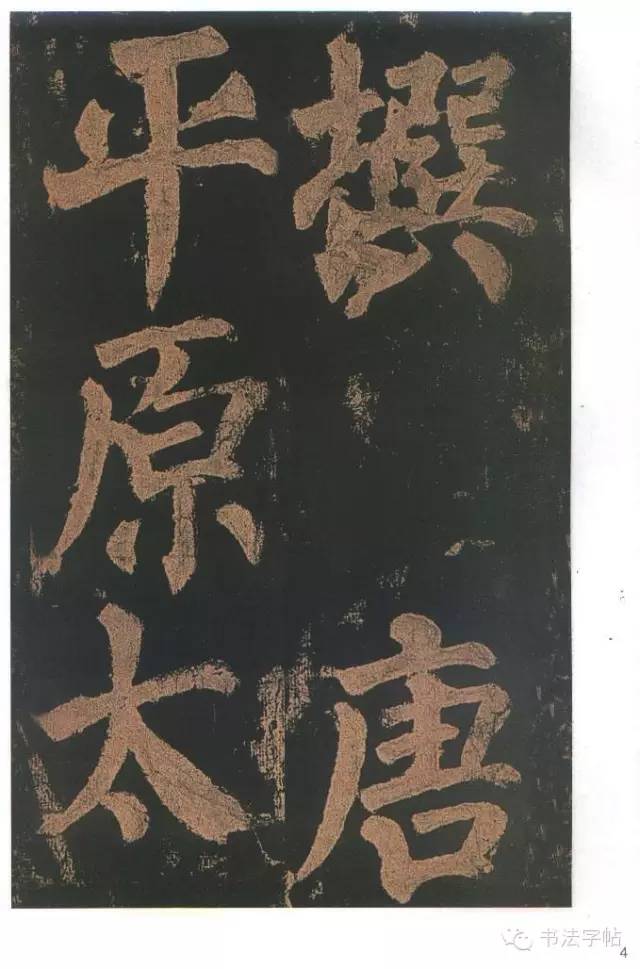 撰唐
平原太
书法字帖
4